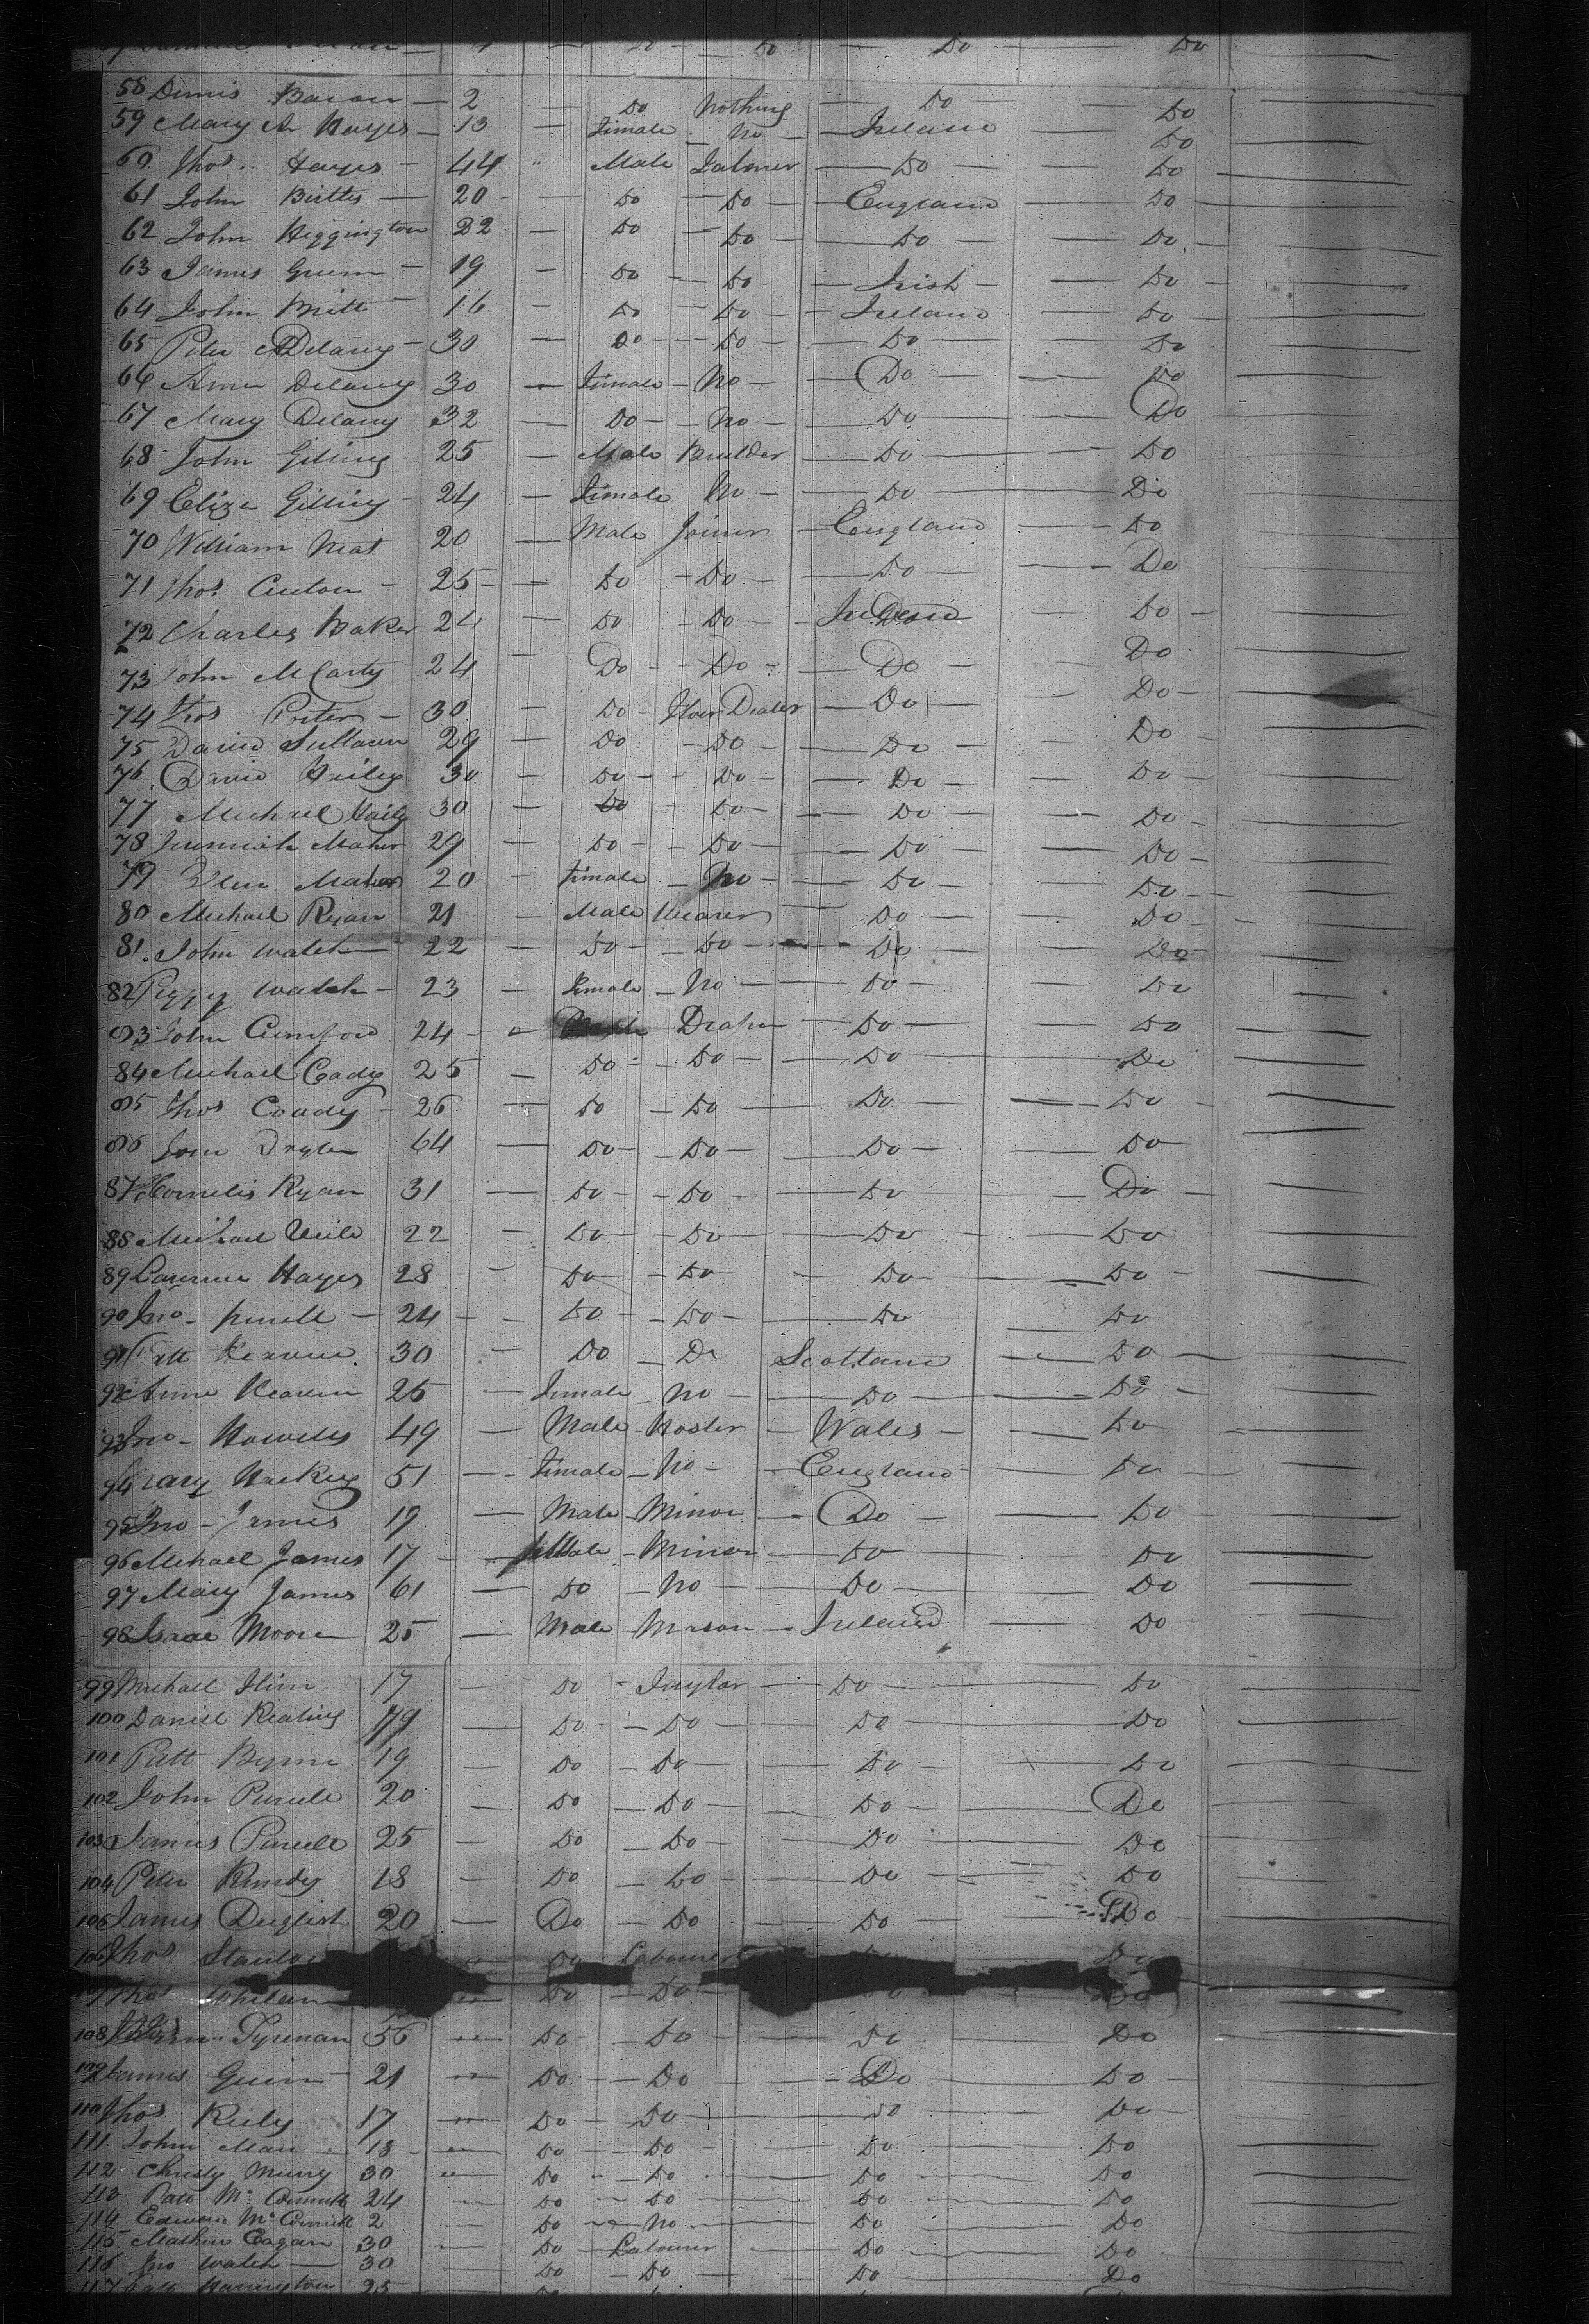 58 Dennis Bacon — 2 — Do Nothing — Do — Do
59 Mary A Hayes — 13 — Female No — Ireland — Do
60 Thos. Hayes — 44 " Male Labourer — Do — Do
61 John — 20 — Do — Do — England — Do
62 John Higgington 22 — Do — Do — Do — Do
63 James — 19 — Do — Do — Irish — Do
64 John Britt — 16 — Do — Do — Ireland — Do
65 Peter Delany — 30 — Do — Do — Do — Do
66 Ann Delany 30 — Female — No — Do — Do
67 Mary Delany 32 — Do — No — Do — Do
68 John Gilling 25 — Male Builder — Do — Do
69 Eliza Gilling — 24 — Female No — Do — Do
70 William 20 — Male Joiner — England — Do
71 Thos — 25 — Do — Do — Do — Do
72 Charles Baker 24 — Do — Do — Ireland — Do
73 John McCarty 24 — Do — Do — Do — Do
74 Thos Porter — 30 — Do — Dealer — Do — Do
75 David Sullavan 29 — Do — Do — Do — Do
76 David Hailey 30 — Do — Do — Do — Do
77 Michael Haily 30 — Do — Do — Do — Do
78 Jeremiah Maher 29 — Do — Do — Do — Do
79 Ellen Maher 20 — Female — No — Do — Do
80 Michael Ryan 21 — Male — Do — Do
81 John Walsh — 22 — Do — Do — Do — Do
82 Peggy Walsh — 23 — Female — No — Do — Do
83 John 24 — — Do — Do
84 Michael Coady 25 — Do — Do — Do — Do
85 Thos Coady — 26 — Do — Do — Do — Do
86 64 — Do — Do — Do — Do
87 Cornelis Ryan 31 — Do — Do — Do — Do
88 Michael 22 — Do — Do — Do — Do
89 Lawrence Hayes 28 — Do — Do — Do — Do
90 Jno — 24 — Do — Do — Do — Do
91 Patt 30 — Do — Do Scotland — Do
92 Anne 25 — Female — No — Do — Do
93 Jno — Howells 49 — Male — Hosler — Wales — Do
94 Mary 51 — Female — No — England — Do
95 Jno — James 19 — Male — Minor — Do — Do
96 Michael James 17 — Male — Minor — Do — Do
97 Mary James 61 — Do — No — Do — Do
98 Isaac Moore 25 — Male — Mason — Ireland — Do
99 Michael 17 — Do — Taylor — Do — Do
100 Daniel Keating 19 — Do — Do — Do — Do
101 Patt Byrne 19 — Do — Do — Do — Do
102 John Purcell 20 — Do — Do — Do — Do
103 James Purcell 25 — Do — Do — Do — Do
104 Peter 18 — Do — Do — Do — Do
105 James 20 — Do — Do — Do — Do
106 Thos Do Labourer Do
Thos Whelan Do — Do — Do
108 56 " Do — Do — Do Do
109 James Quinn 21 " Do — Do — Do — Do
110 Thos Riely 17 " Do — Do — Do — Do
111 John Man 18 — Do — Do — Do — Do
112 Christy Murry 30 " Do — Do — Do — Do
113 Patt Mc Cormick 24 — Do — Do — Do — Do
114 Edward Mc Cormick 2 — Do — No — Do — Do
115 Mathew Eagan 30 — Do — Labourer — Do — Do
116 Jno Walsh — 30 — Do — Do — Do — Do
117 Patt Harrington 25